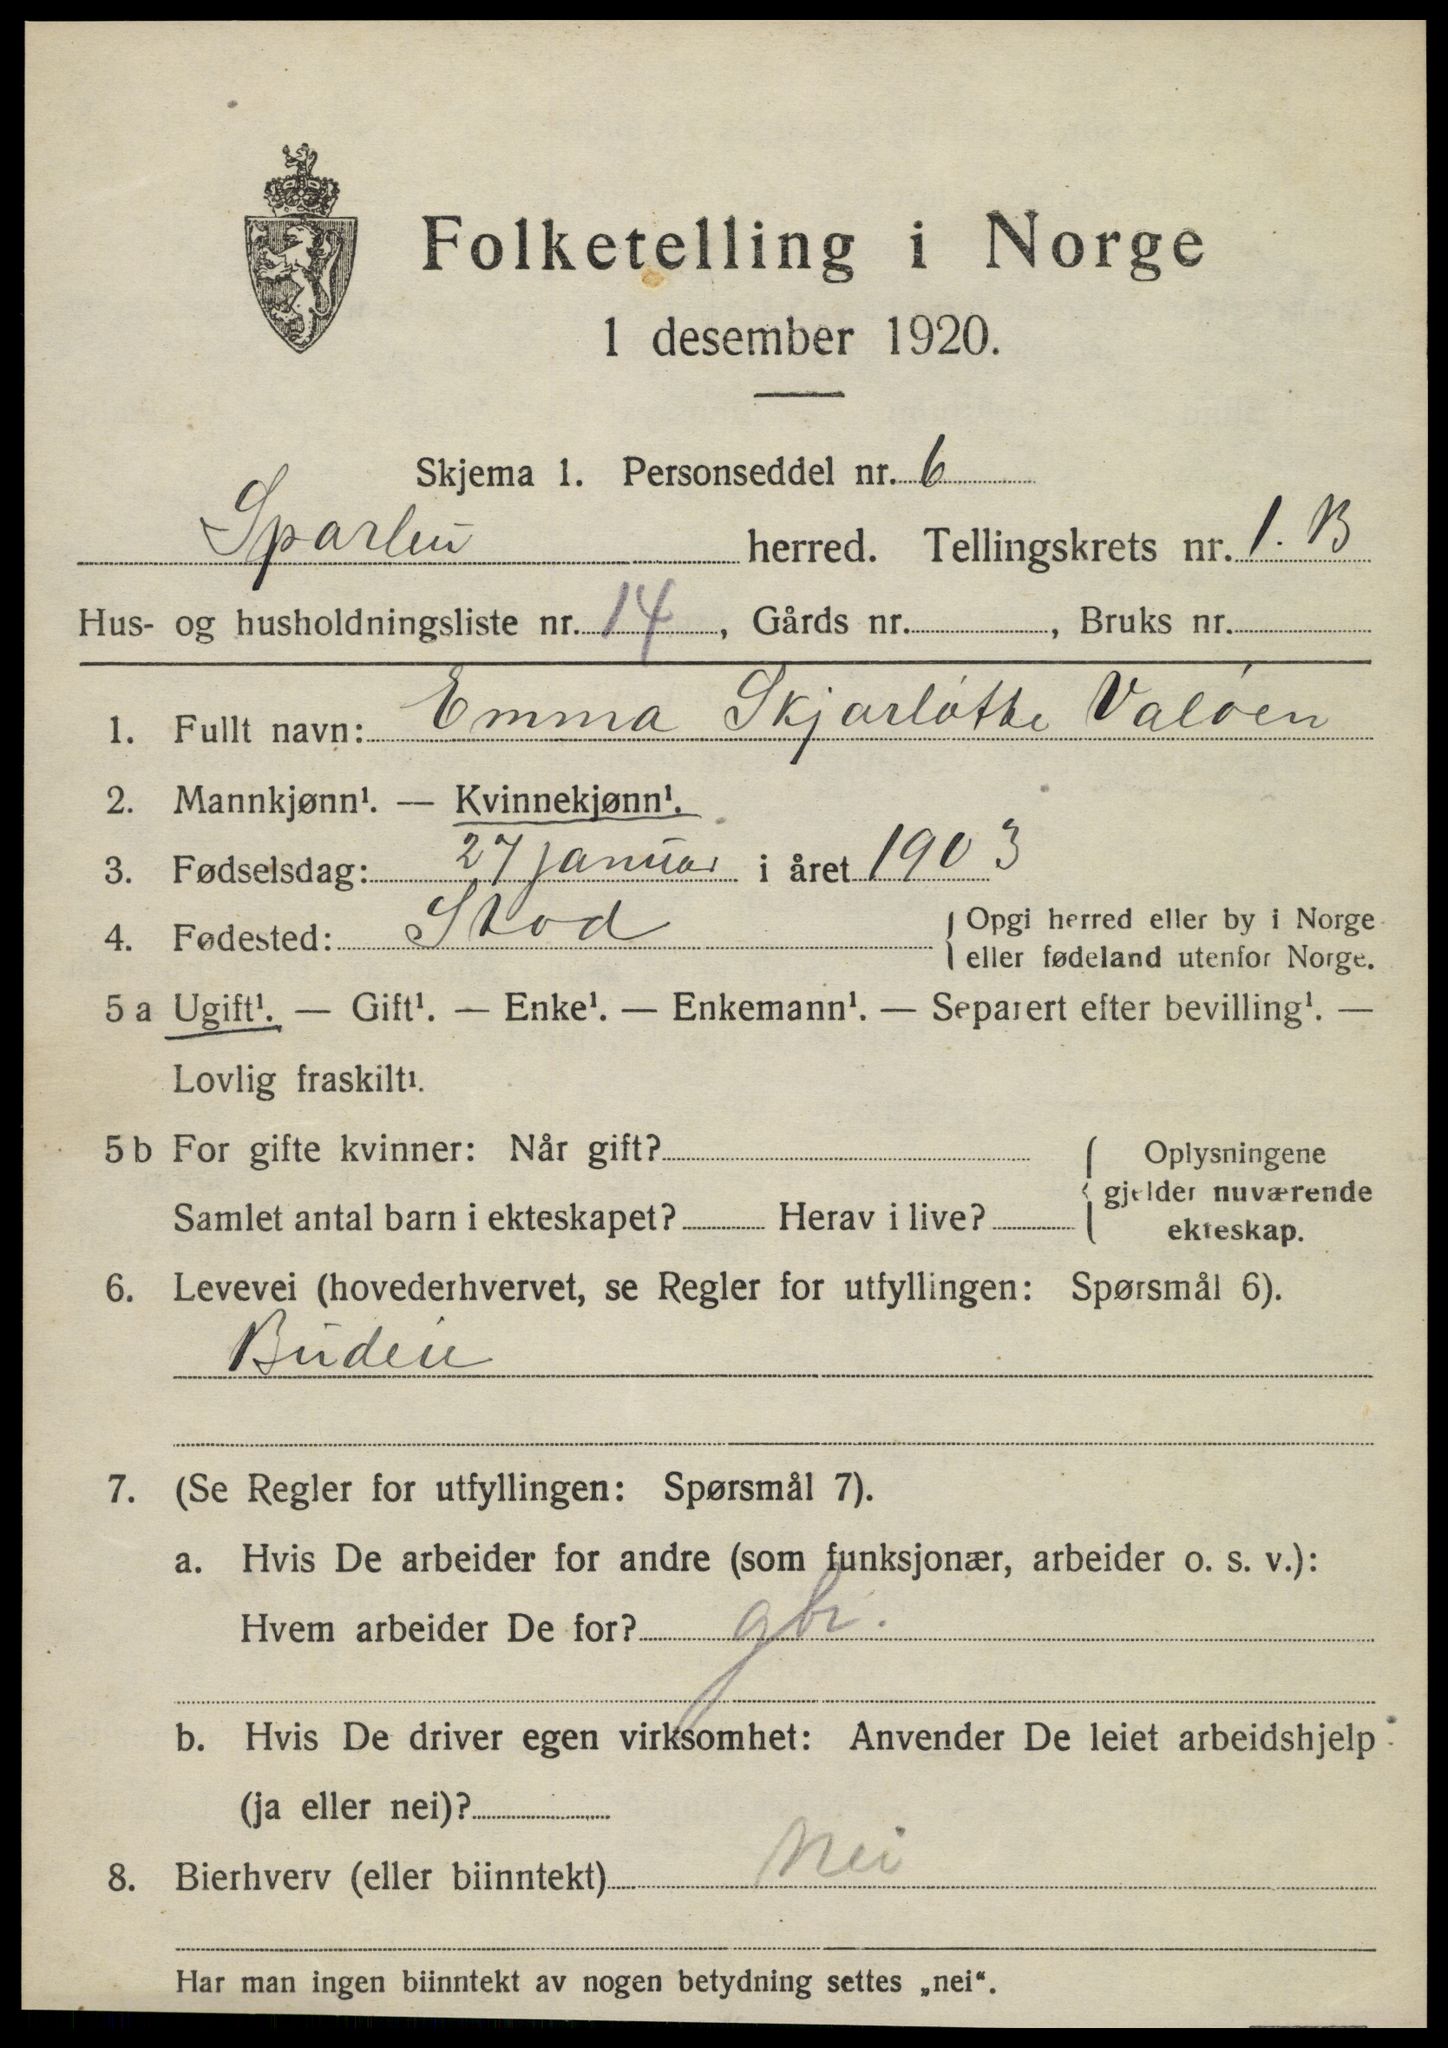 Folketelling i Norge
1 desember 1920.
Skjema 1. Personseddel nr. 6
Sparbu herred. Tellingskrets nr. 1. B
Hus- og husholdningsliste nr. 14, Gårds nr. , Bruks nr.
1. Fullt navn: Emma Skjarlótte Valóen
2. Mannkjønn¹. — Kvinnekjønn¹.
3. Fødselsdag: 27 januar i året 1903
4. Fødested: Stod { Opgi herred eller by i Norge
eller fødeland utenfor Norge.
5 a Ugift¹. — Gift¹. — Enke¹. — Enkemann¹. — Separert efter bevilling¹. —
Lovlig fraskilt¹.
5 b For gifte kvinner: Når gift? { Oplysningene
gjelder nuværende
Samlet antal barn i ekteskapet? Herav i live? ekteskap.
6. Levevei (hovederhvervet, se Regler for utfyllingen: Spørsmål 6).
Budeie
7. (Se Regler for utfyllingen: Spørsmål 7).
a. Hvis De arbeider for andre (som funksjonær, arbeider o. s. v.):
Hvem arbeider De for? gbr.
b. Hvis De driver egen virksomhet: Anvender De leiet arbeidshjelp
(ja eller nei)?
8. Bierhverv (eller biinntekt) Nei
Har man ingen biinntekt av nogen betydning settes „nei“.